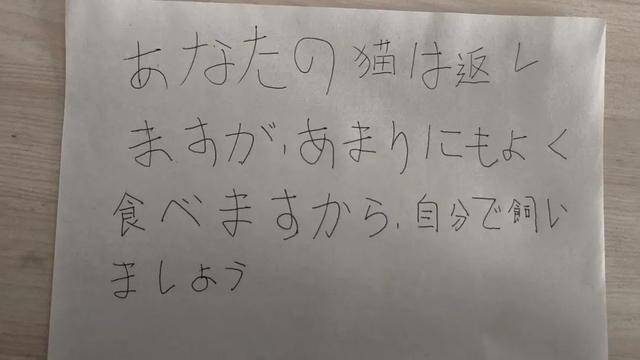 あなたの猫は返し
ますが、あまりにもよく
食べますから、自分で飼い
ましょう